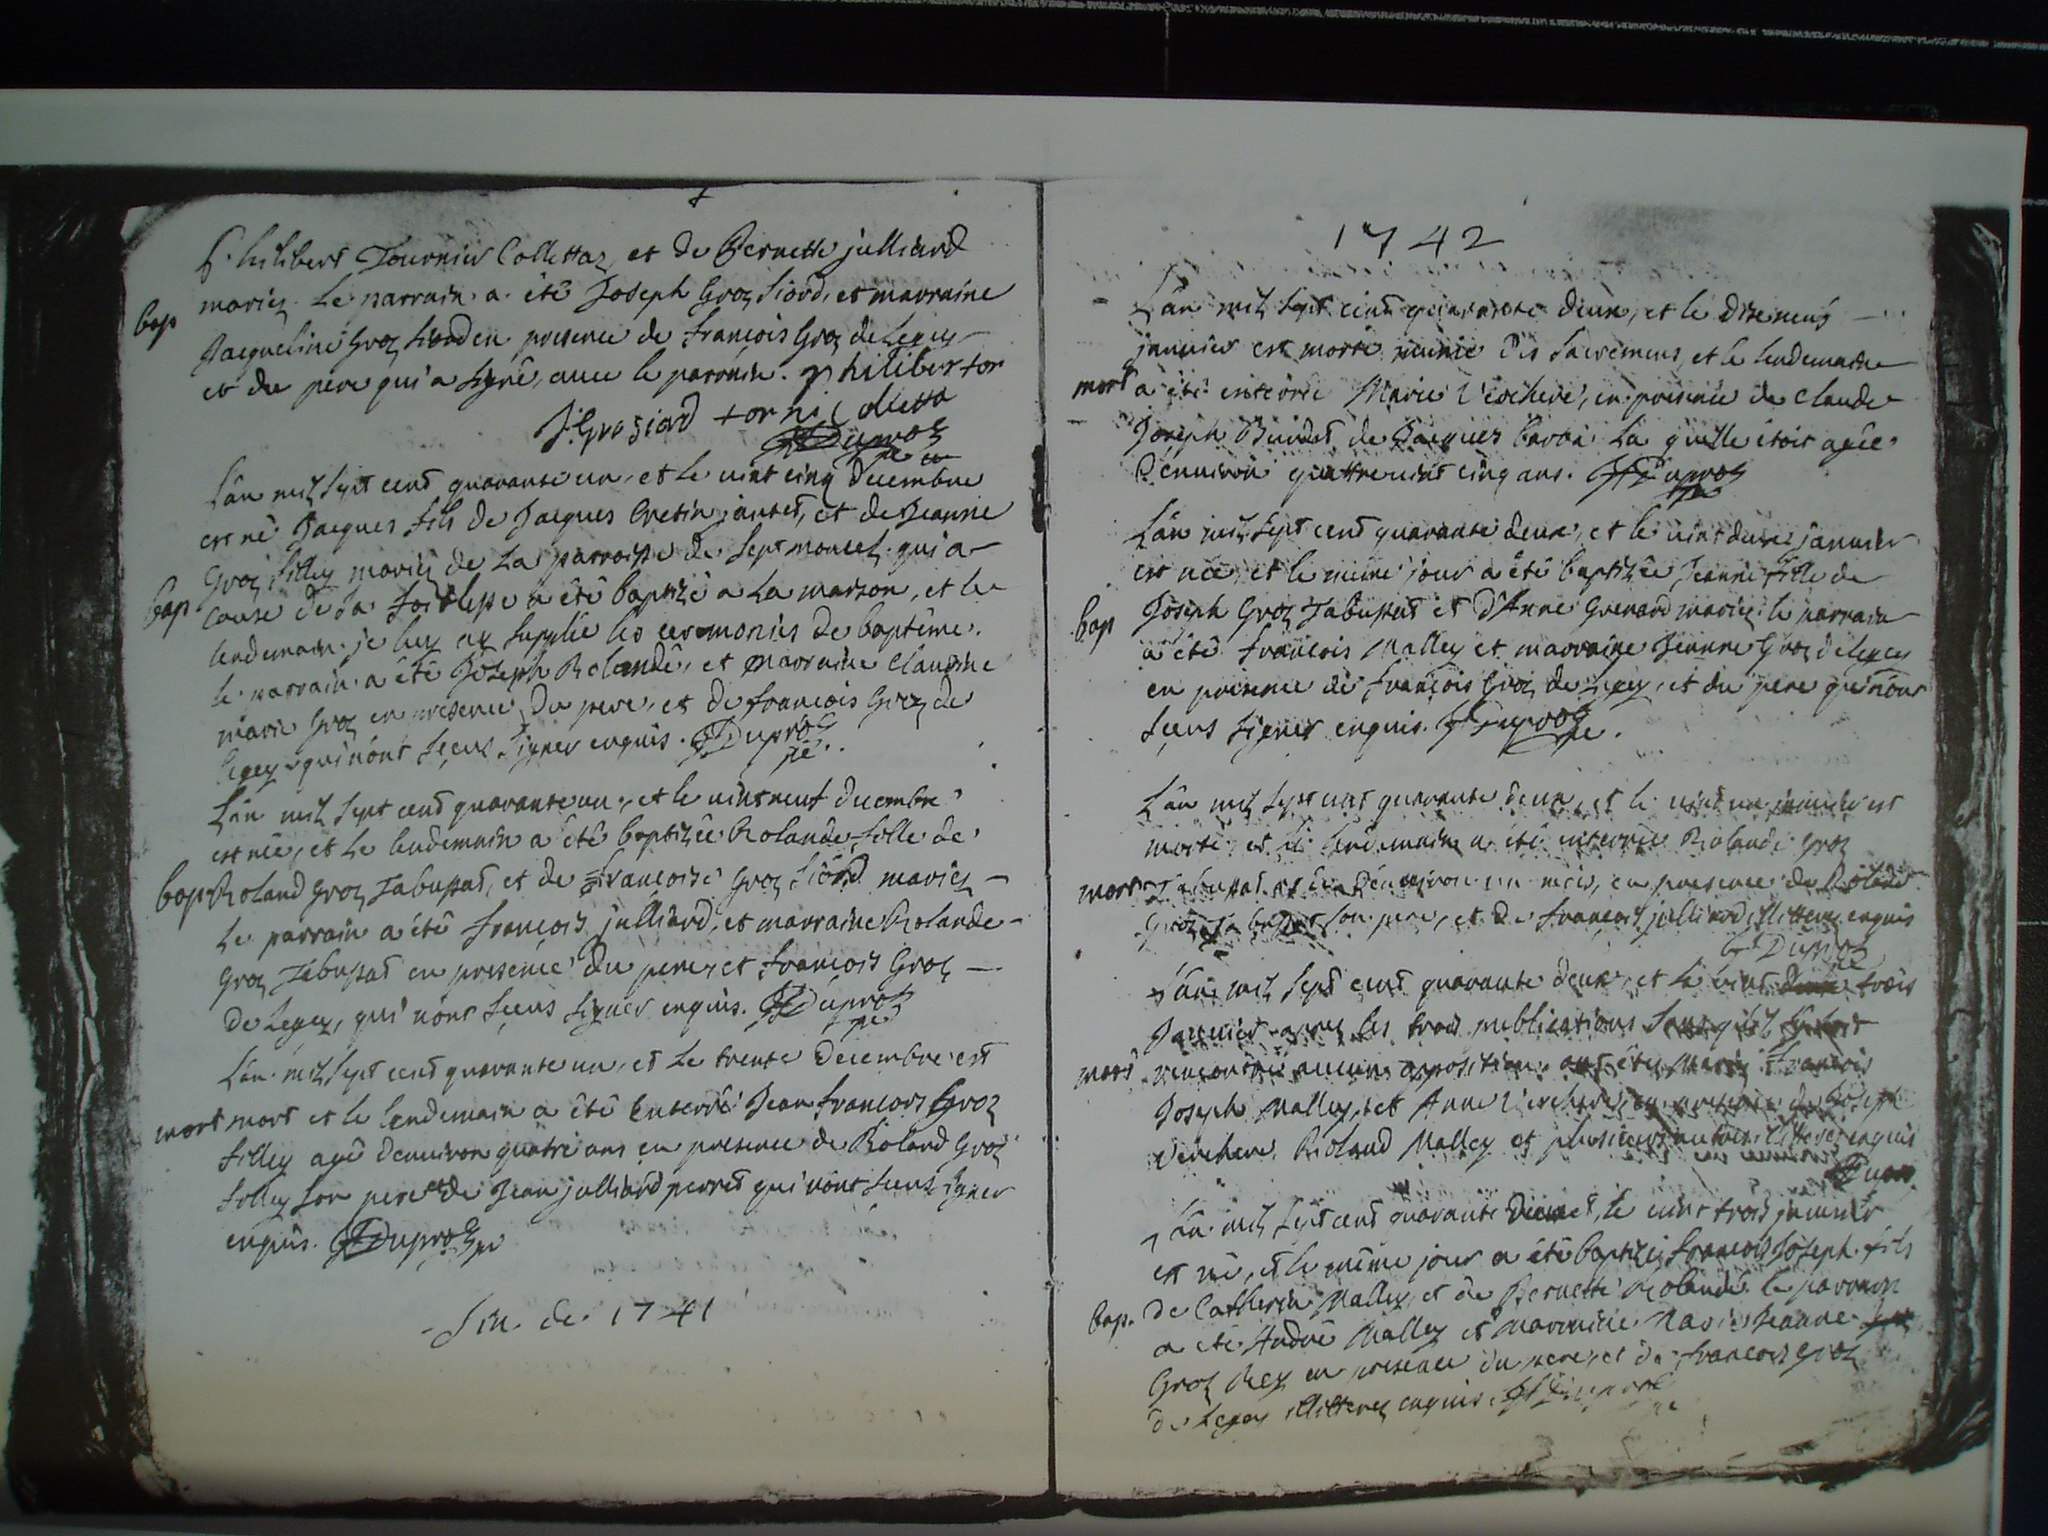 philibert Tournier Collettaz, et de Pernette julliard
mariez. Le parrain a été Joseph Groz Siord, et marraine
bap
Jacqueline Groz Siord en presence de francois Groz de Legez
et du pere qui a signé, avec le parrain. philiber tor
J: Grosiord tornie Colletta
Duproz
Lân mil sept cent quarante un, et le vint cinq decembre
est né Jacques fils de Jacques Cretin jantet, et de Jeanne
Groz filley mariez de la parroisse de Sept moncel qui a
bap
cause de sa foiblesse a été baptizé a la maison, et le
lendemain je luy ay supplée les ceremonies de baptême.
le parrain a été Joseph Rolandé, et marraine Claudine
marie Groz en presence du pere, et de francois Groz de
legez qui nônt sceus signer enquis. Duproz
Lân mil sept cent quarante un, et le vint neuf decembre
est née, et le lendemain a été baptizée Rolande fille de
bap Roland Groz Tabussat, et de francoise Groz Siord mariez
Le parrain a été francois julliard, et marraine Rolande
Groz Tabussat en presence du pere, et francois Groz
de Legez, qui nônt sceus signer enquis. Duproz
Lân mil sept cent quarante un, et le trente decembre est
mort mort et le lendemain a été enterré Jean francois Groz
filley agé denviron quatre ans en presence de Roland Groz
filley son pere et de Jean julliard perret qui nônt sceus signer
enquis. Duproz
fin de 1741
1742
Lân mil sept cent quarante deux, et le dixneuf
janvier est morte munie des sacremens, et le lendemain
mort a été enterrée Marie Verchere, en presence de Claude
Joseph de Jacques la quelle étoit agée
Denviron quattrevint cinq ans. Duproz
Lân mil sept cent quarante deux, et le vint deux janvier
est née, et le même jour a été baptizée Jeanne fille de
bap
Joseph Groz Tabussat et d'Anne Grenard mariez le parrain
a été francois Malley et marraine Jeanne Groz de legez
en presence de françois Groz de Legez, et du pere qui nônt
sceus signer enquis. Duproz
Lân mil sept cent quarante deux, et le vint un janvier est
morte, et le lendemain a été enterrée Rolande Groz
mort Tabussat denviron un mois, en presence de Roland
Groz Tabussat son pere, et de françois julliard illitterez enquis
Duproz
Lân mil sept cent quarante deux, et le vint trois
Janvier apres les trois publications sans
rencontré aucune opposition, ont été mariez francois
Joseph Malley, et Anne Verchere, en presence de Joseph
Verchere, Roland Malley et plusieurs autres illiterez enquis
Duproz
Lân mil sept cent quarante Deux et le vint trois janvier
est né, et le même jour a été baptizé francois Joseph fils
bap. de Catherin Malley, et de Pernette Rolandé le parrain
a été André Malley et marraine Marie Jeanne
Groz Rey en presence du pere, et de francois Groz
de Legez illitterez enquis. Duproz